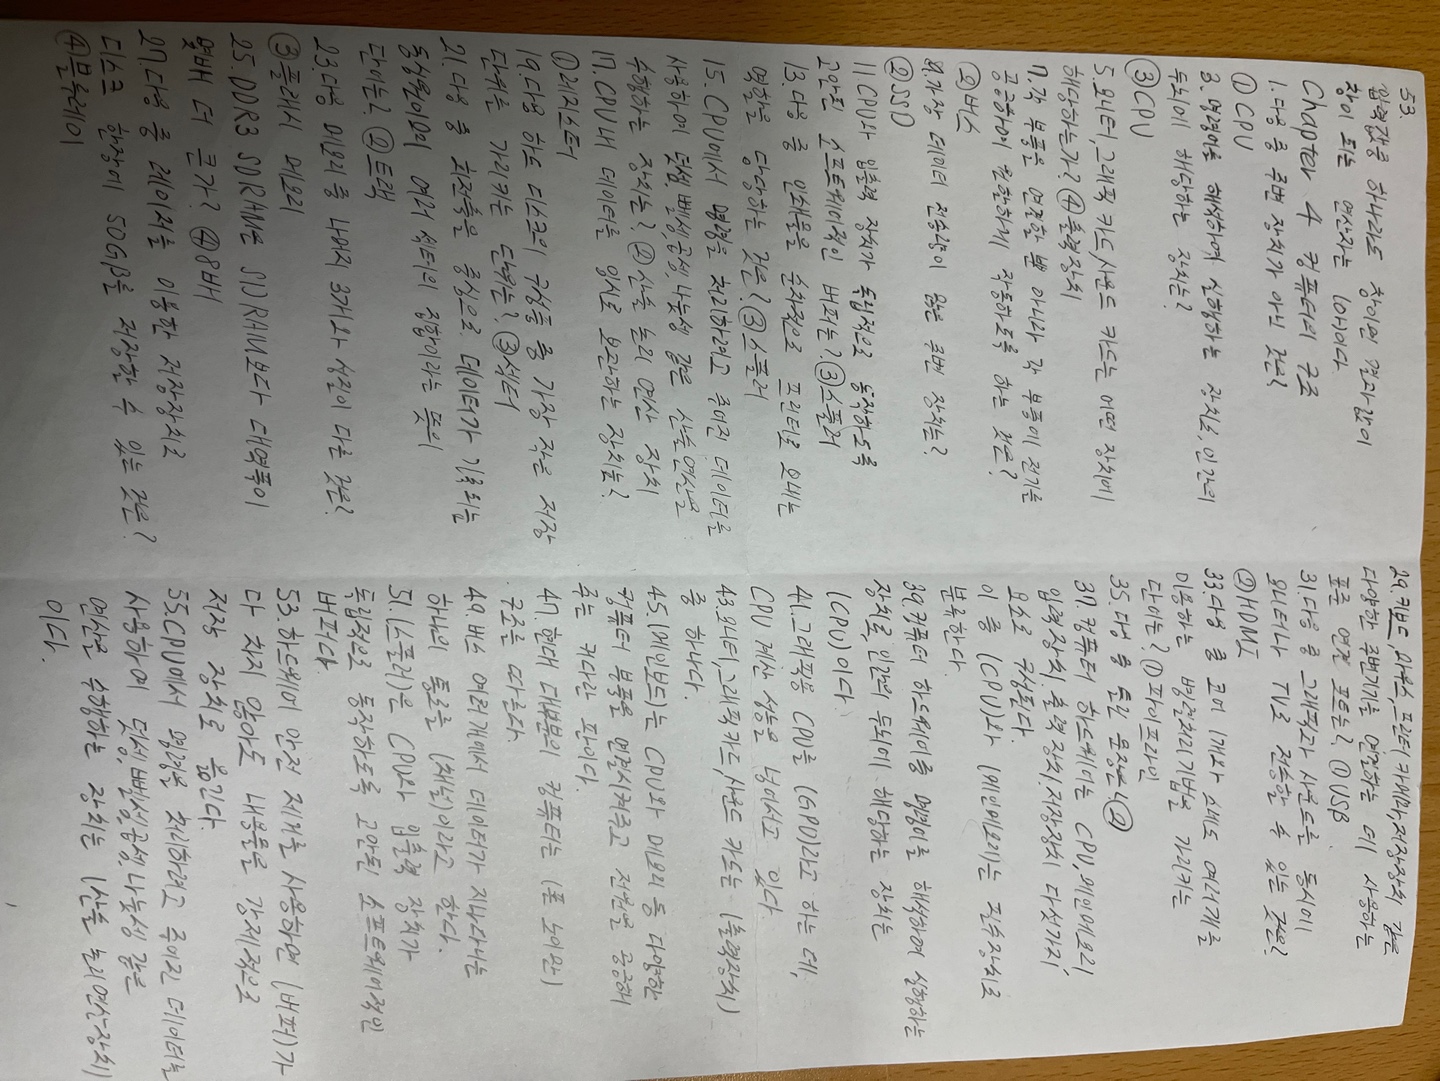 53.
입력값중 하나라도 참이면 결과값이
참이 되는 연산자는 (or)이다
Chapter 4 컴퓨터의 구조
1.다음 중 주변 장치가 아닌 것은?
①CPU
3.명령어를 해석하여 실행하는 장치로,인간의
두뇌에 해당하는 장치는?
③CPU
5.모니터,그래픽 카드,사운드 카드는 어떤 장치에
해당하는가? ④출력장치
7.각 부품을 연결할 뿐 아니라 각 부품에 전기를
공급하여 원할하게 작동하도록 하는 것은?
②버스
9.가장 데이터 전송량이 많은 주변 장치는?
②SSD
11 CPU와 입출력 장치가 독립적으로 동작하도록
고안된 소프트웨어적인 버퍼는? ③스풀러
13.다음 중 인쇄물을 순차적으로 프린터로 보내는
역할을 담당하는 것은? ③스풀러
15. CPU에서 명령을 처리하려고 주어진 데이터를
사용하여 덧셈,뺄셈,곱셈,나눗셈 같은 산술연산을
수행하는 장치는? ②산술 논리 연산 장치
17.CPU내 데이터를 임시로 보관하는 장치는?
①레지스터
19.다음 하드 디스크의 구성품 중 가장 작은 저장
단위를 가리키는 단위는? ③섹터
21.다음 중 회전축을 중심으로 데이터가 기록되는
동심원이모여 여러 섹터의 집합이라는 뜻의
단어는? ②트랙
23.다음 메모리 중 나머지 3개와 성질이 다른 것은?
③플래시 메모리
25.DDR3 SDRAM은 SDRAM보다 대역폭이
몇배 더 큰가? ④8배
27.다음 중 레이저를 이용한 저장장치로
디스크 한장에 50GB를 저장할 수 있는 것은?
④블루레이
29.키보드,마우스,프린터 카메라,저장장치 같은
다양한 주변기기를 연결하는 데 사용하는
표준 연결 포트는? ①USB
31.다음 중 그래픽과 사운드를 동시에
모니터나 TV로 전송할 수 있는 것은?
②HDMI
33.다음 중 코어 1개와 스레드 여러개를
이용하는 병렬처리기법을 가리키는
단어는? ①파이프라인
35.다음 중 틀린 문장은? ②
37.컴퓨터 하드웨어는 CPU,메인메모리,
입력장치.출력장치.저장장치 다섯가지
요소로 구성된다.
이 중 (CPU)와 (메인메모리)는 필수장치로
분류한다.
39.컴퓨터 하드웨어중 명령어를 해석하여 실행하는
장치로,인간의 두뇌에 해당하는 장치는
(CPU)이다
41.그래픽용 CPU를 (GPU)라고 하는 데,
CPU 계산 성능을 넘어서고 있다.
43.모니터,그래픽카드,사운드 카드는 (출력장치)
중 하나다.
45.(메인보드)는 CPU와 메모리 등 다양한
컴퓨터 부품을 연결시켜주고 전원을 공급해
주는 커다란 판이다.
47.현대 대부분의 컴퓨터는 (폰 노이만)
구조를 따른다.
49.버스 여러개에서 데이터가 지나다니는
하나의 통로를 (채널)이라고 한다.
51.(스풀러)은 CPU와 입출력 장치가
독립적으로 동작하도록 고안된 소프트웨어적인
버퍼다.
53.하드웨어 안전 제거를 사용하면 (버퍼)가
다 차지 않아도 내용물을 강제적으로
저장 장치로 옮긴다.
55.CPU에서 명령을 처리하려고 주어진 데이터를
사용하여 덧셈,뺄셈,곱셈,나눗셈 같은
연산을 수행하는 장치는 (산술 논리연산장치)
이다.